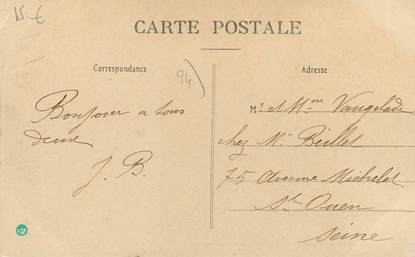 15 €
CARTE POSTALE
Correspondance
94
Adresse
Bonjour a tous
deux
J. B.
Mr et Mme Vaugelade
chez Mr Beillet
75 Avenue Michelet
St. Ouen
Seine